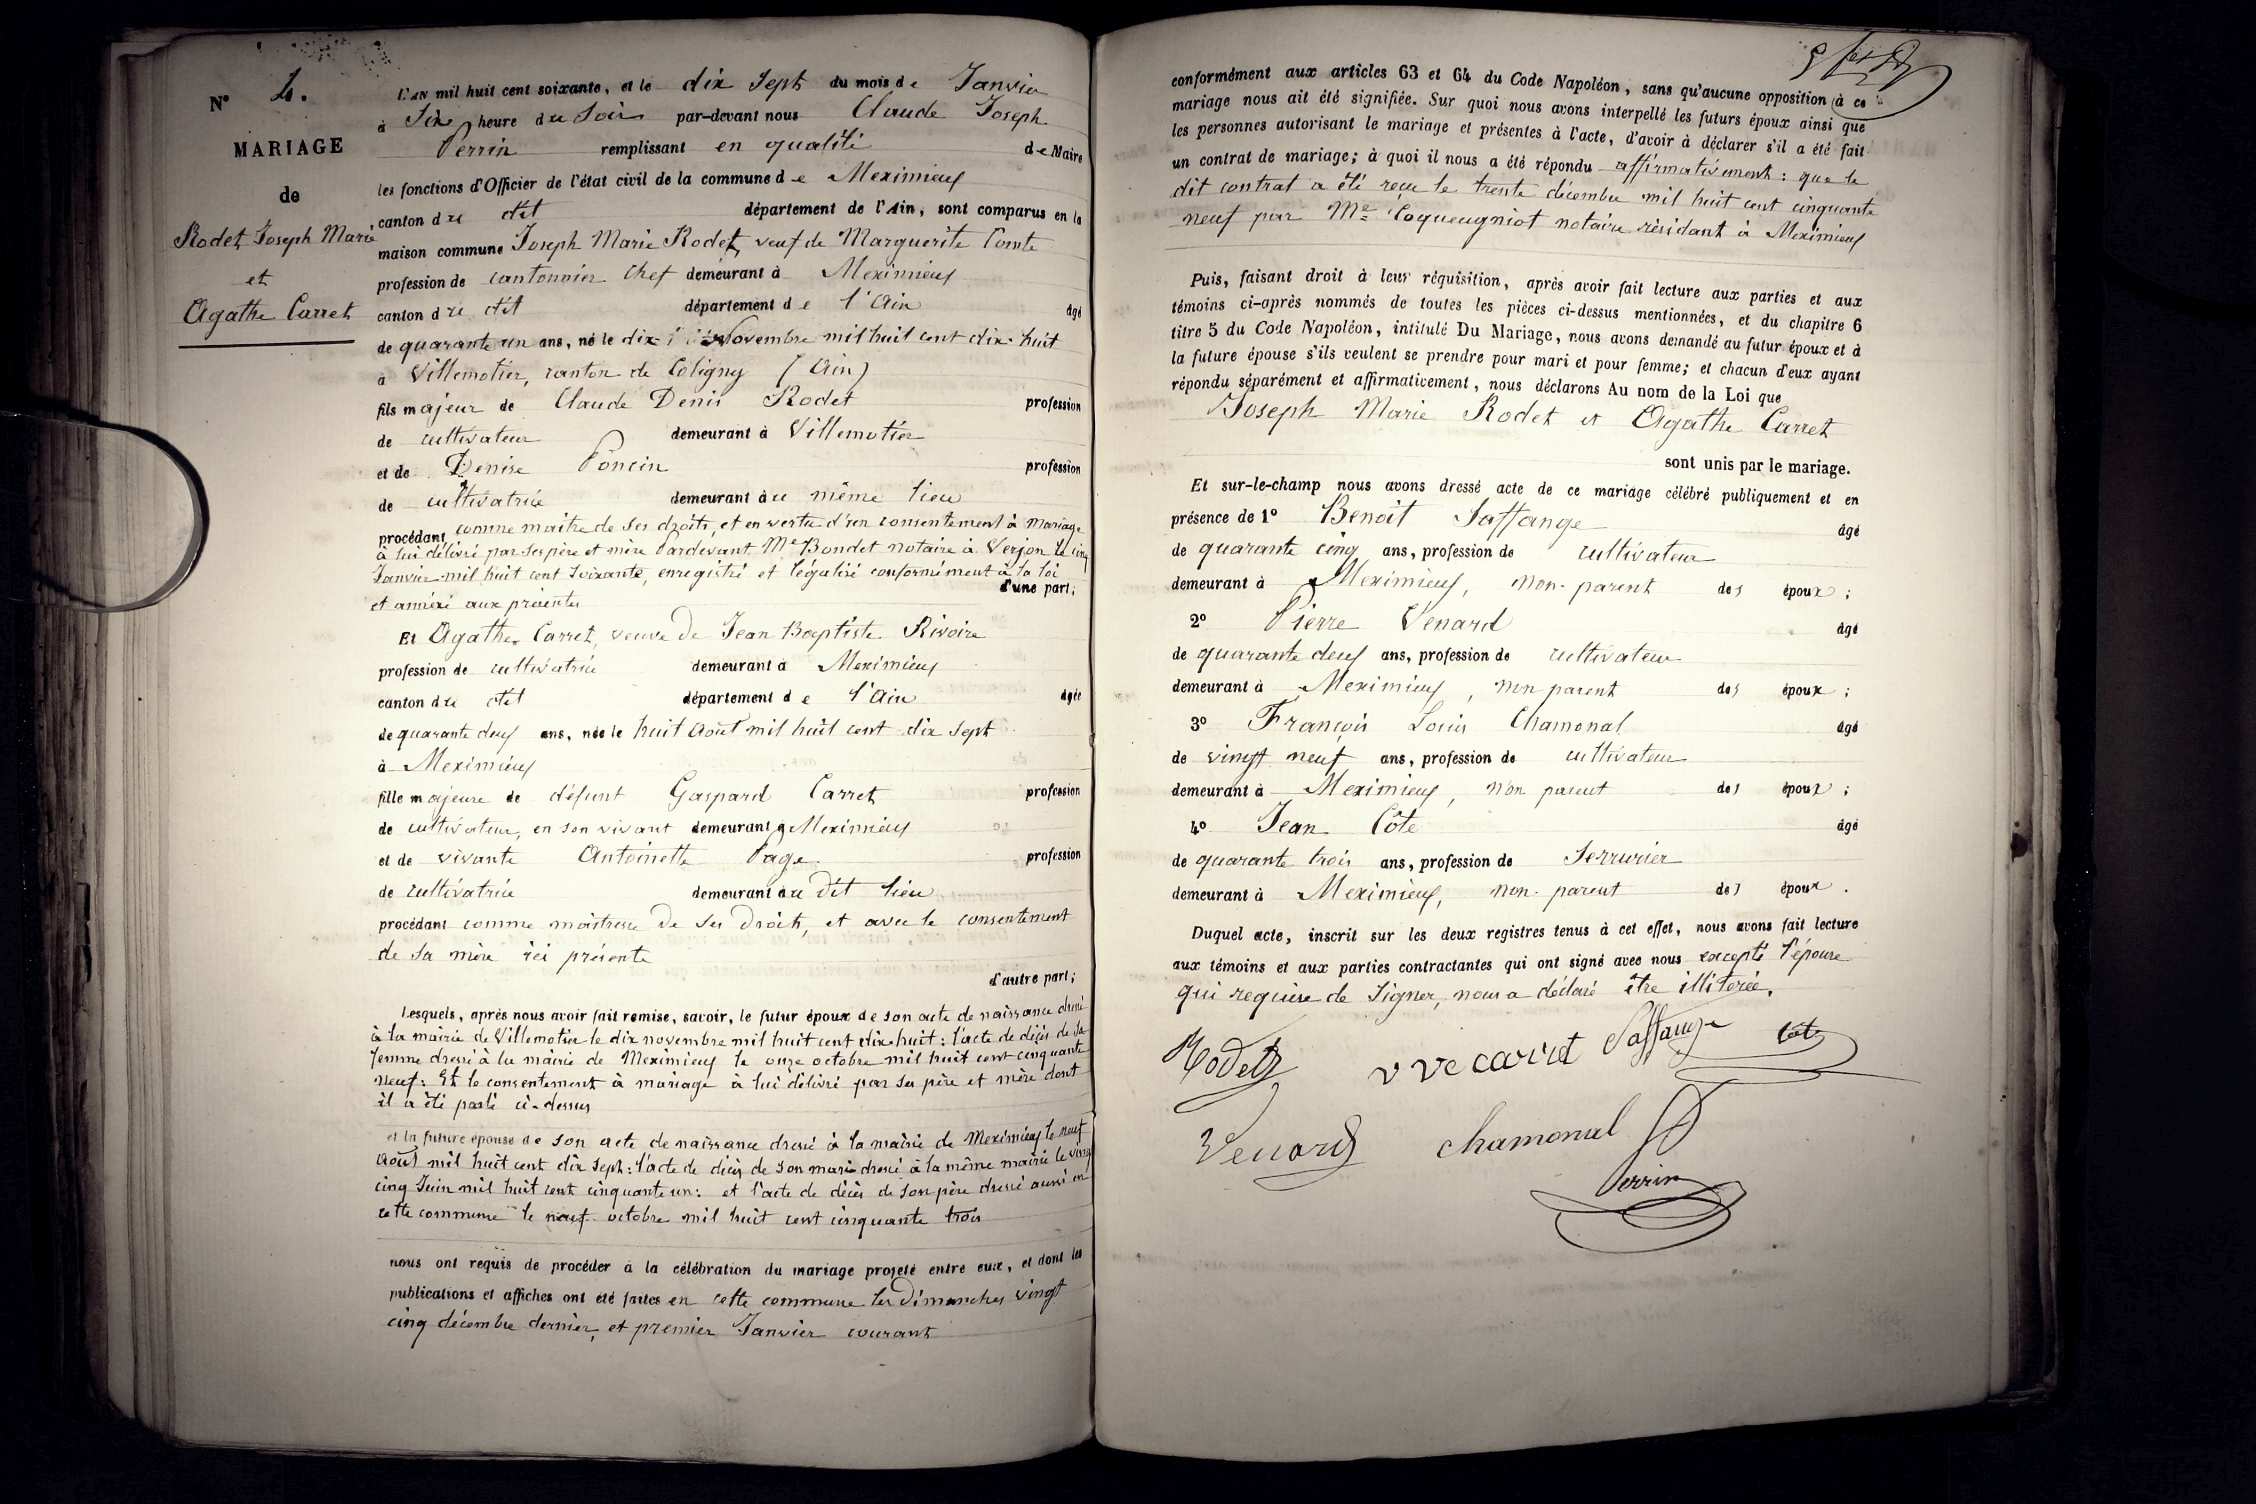 N° 4.
MARIAGE
de
Rodet Joseph Marie
et
Agathe Carret
L'AN mil huit cent soixante, et le dix sept du mois de Janvier
à Six heure du Soir par-devant nous Claude Joseph
Perrin remplissant en qualité de Maire
les fonctions d'Officier de l'état civil de la commune de Meximieux
canton du dit département de l'Ain, sont comparus en la
maison commune Joseph Marie Rodet, veuf de Marguerite Comte
profession de cantonnier chef demeurant à Meximieux
canton du dit département de l'Ain âgé
de quarante un ans, né le dix Novembre mil huit cent dix-huit
à Villemotier, canton de Coligny (Ain)
fils majeur de Claude Denis Rodet profession
de cultivateur demeurant à Villemotier
et de Denise Poncin profession
de cultivatrice demeurant au même lieu
procédant comme maitre de ses droits, et en vertu d'un consentement à mariage
à lui délivré par ses père et mère Pardevant Me Bondet notaire à Verjon le cinq
Janvier mil huit cent soixante, enregistré et légalisé conformément à la loi
et annéxé aux présentes d'une part;
Et Agathe Carret, veuve de Jean Baptiste Rivoire
profession de cultivatrice demeurant à Meximieux
canton du dit département de l'Ain âgée
de quarante deux ans, née le huit Août mil huit cent dix sept
à Meximieux
fille majeure de défunt Gaspard Carret profession
de cultivateur, en son vivant demeurant à Meximieux
et de vivante Antoinette Page profession
de cultivatrice demeurant au dit lieu
procédant comme maitresse de ses droits, et avec le consentement
de sa mère ici présente
d'autre part;
Lesquels, après nous avoir fait remise, savoir, le futur époux de son acte de naissance dressé
à la mairie de Villemotier le dix novembre mil huit cent dix-huit : l'acte de décès de sa
femme dressé à la mairie de Meximieux le onze octobre mil huit cent cinquante
neuf : Et le consentement à mariage à lui délivré par ses père et mère dont
il a été parlé ci-dessus
et la future épouse de son acte de naissance dressé à la mairie de Meximieux le neuf
Août mil huit cent dix sept : l'acte de décès de son mari dressé à la même mairie le vingt
cinq Juin mil huit cent cinquante un : et l'acte de décès de son père dressé aussi en
cette commune le neuf octobre mil huit cent cinquante trois
nous ont requis de procéder à la célébration du mariage projeté entre eux, et dont les
publications et affiches ont été faites en cette commune les Dimanches vingt
cinq décembre dernier, et premier Janvier courant
conformément aux articles 63 et 64 du Code Napoléon, sans qu'aucune opposition à ce
mariage nous ait été signifiée. Sur quoi nous avons interpellé les futurs époux ainsi que
les personnes autorisant le mariage et présentes à l'acte, d'avoir à déclarer s'il a été fait
un contrat de mariage; à quoi il nous a été répondu affirmativement : que le
dit contrat a été reçu le trente décembre mil huit cent cinquante
neuf par Me Coqueugniot notaire résidant à Meximieux
Puis, faisant droit à leur réquisition, après avoir fait lecture aux parties et aux
témoins ci-après nommés de toutes les pièces ci-dessus mentionnées, et du chapitre 6
titre 5 du Code Napoléon, intitulé Du Mariage, nous avons demandé au futur époux et à
la future épouse s'ils veulent se prendre pour mari et pour femme; et chacun d'eux ayant
répondu séparément et affirmativement, nous déclarons Au nom de la Loi que
Joseph Marie Rodet et Agathe Carret
sont unis par le mariage.
Et sur-le-champ nous avons dressé acte de ce mariage célébré publiquement et en
présence de 1° Benoit Saffange âgé
de quarante cinq ans, profession de cultivateur
demeurant à Meximieux, non-parent des époux;
2° Pierre Venard âgé
de quarante deux ans, profession de cultivateur
demeurant à Meximieux, non parent des époux;
3° François Louis Chamonal âgé
de vingt neuf ans, profession de cultivateur
demeurant à Meximieux, non parent des époux;
4° Jean Côte âgé
de quarante trois ans, profession de Serrurier
demeurant à Meximieux, non-parent des époux.
Duquel acte, inscrit sur les deux registres tenus à cet effet, nous avons fait lecture
aux témoins et aux parties contractantes qui ont signé avec nous excepté l'épouse
qui requise de signer, nous a déclaré être illitérée.
Rodet vve carret Saffange Cote
Venard chamonal
Perrin